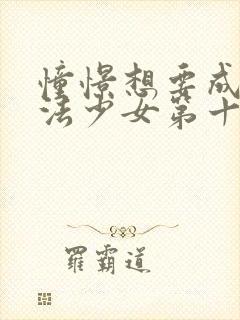 憧憬想要成
法少女第十
羅霸道